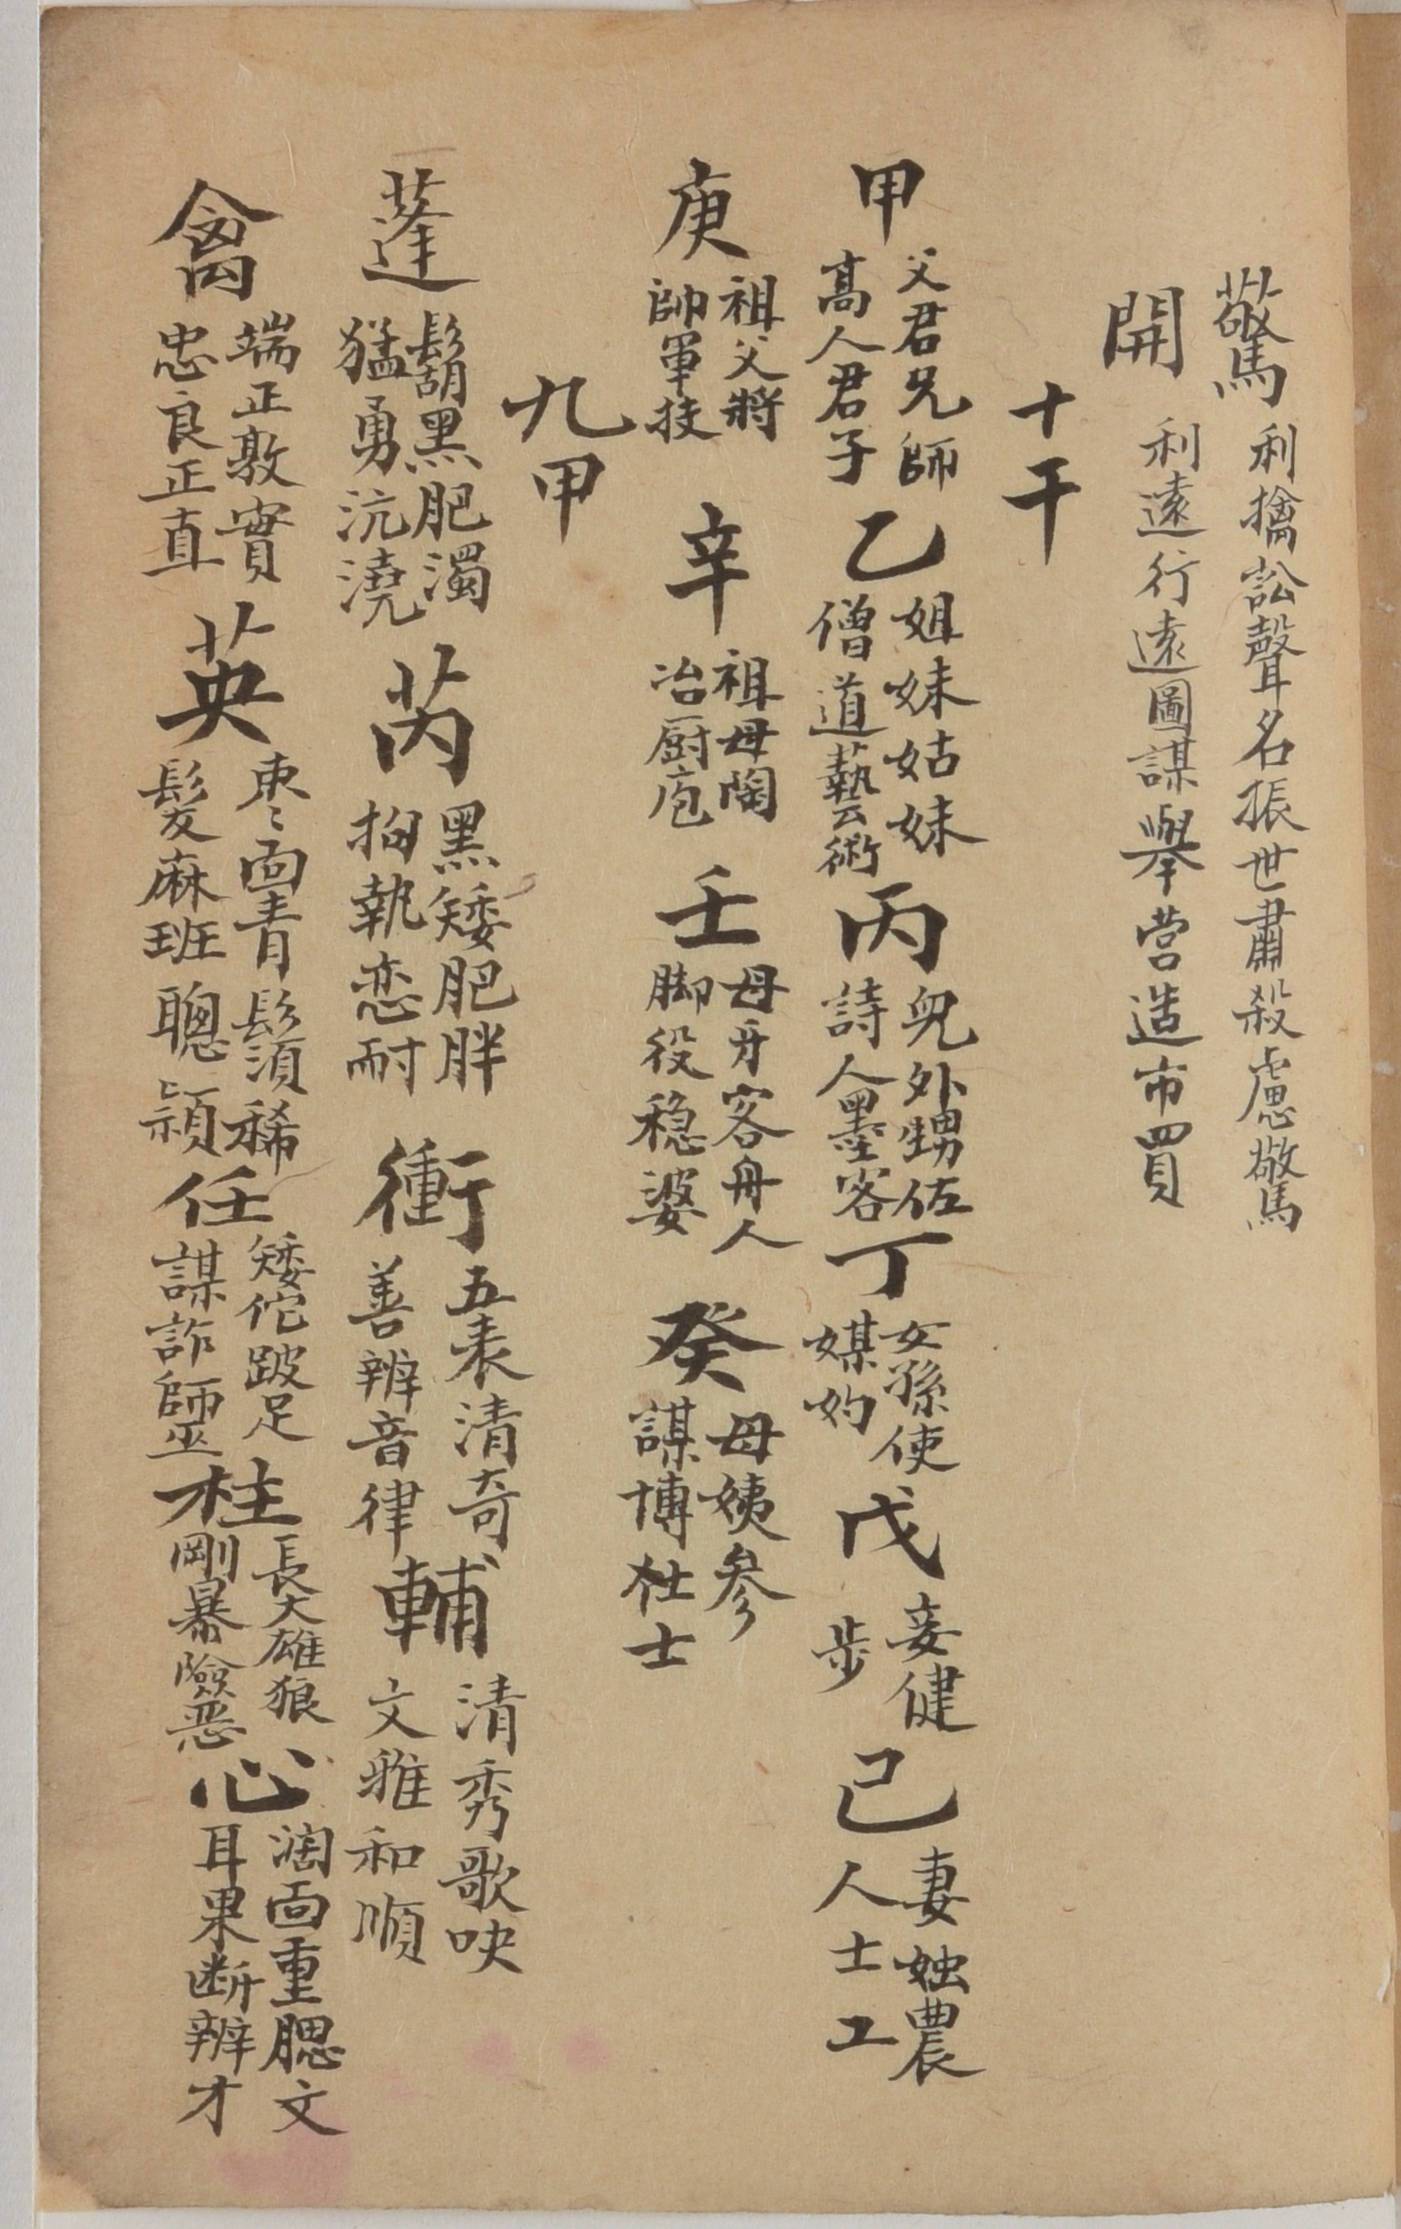 驚 利擒訟聲名振世肅殺慮驚
開 利遠行遠圖謀舉营造市買
十干
甲 父君兄師高人君子 乙 姐妹姑妹僧道藝術 丙 兒外甥佐詩人墨客 丁 女孫使媒妁 戊 妾健步 己 妻妯農人士工
庚 祖父將帥軍技 辛 祖母陶冶厨庖 壬 母牙客舟人脚役稳婆 癸 母姨参謀博仕士
九甲
蓬 鬍黑肥濁猛勇沆澆 芮 黑矮肥胖拘執恋耐 衝 五表清奇善辨音律 輔 清秀歌吷文雅和順
禽 端正敦實忠良正直 英 枣面青鬚稀髮麻班聰頴 任 矮佗跛足謀詐師巫 柱 長大雄狼剛暴險恶 心 濶面重腮文耳果断辨才